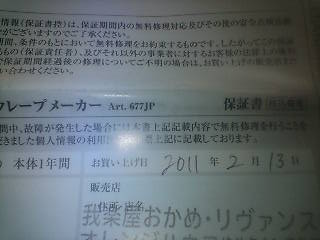 情報(保証書控)は、保証期間内の無料修理対応及びその後の安全点検活動
がございますのでご了承ください。
期間、条件のもとにおいて無料修理をお約束するものです。したがってこの保証
るもの(保証責任者)、以外の事業者に対するお客様の法律上の
証期間経過後の修理についてご不明の場合は、お買い上げの販売店
い合わせください。
クレープメーカー Art. 677JP 保証書
間中、故障が発生した場合には本書上記記載内容で無料修理を行うことを
だきました個人情報の利用 票上記に記載しております。
本体1年間 お買い上げ日 2011年 2月 13日
販売店
住所・店名
我楽屋おかめ・リヴァンス